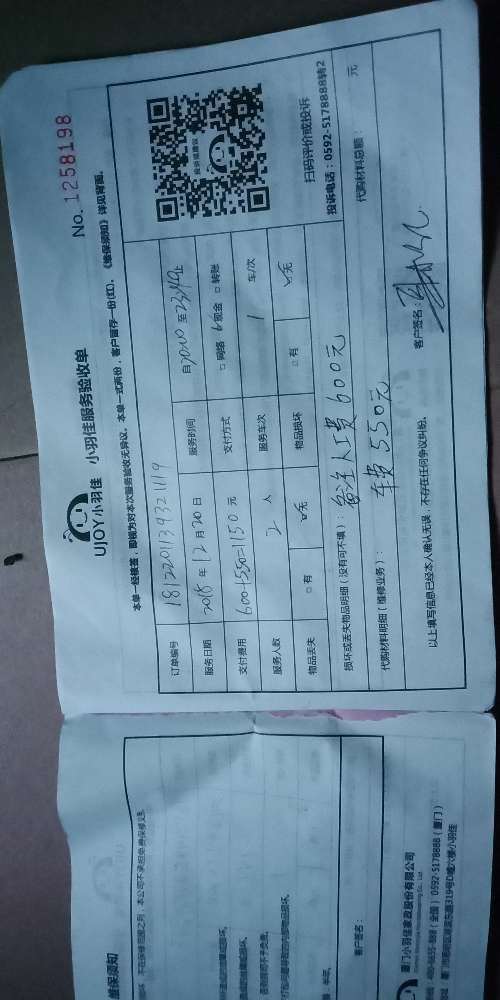 No. 1258198
UJOY小羽佳 小羽佳服务验收单
本单一经续签，即视为对本次服务验收无异议。本单一式两份，客户留存一份(红)，《维保须知》详见背面。
订单编号 181220139321119
服务日期 2018 年 12 月 20 日 服务时间 自20:00 至23:49止
支付费用 600+550=1150 元 支付方式 □网络 □现金 □转账
服务人数 2 人 服务车次 1 车/次
物品丢失 □有 □无 物品损坏 □有 □无
扫码评价或投诉
投诉电话：0592-5178888转2
损坏或丢失物品明细（没有可不填）： 备注人工费600元
车费550元
代购材料明细（维修业务）： 代购材料总额： 元
以上填写信息已经本人确认无误，不存在任何争议纠纷。 客户签名：
维保须知
本公司不承担免费保修义务
客户签名：
厦门小羽佳家政股份有限公司
（全国）0592-5178888（厦门）
319号D幢六楼小羽佳